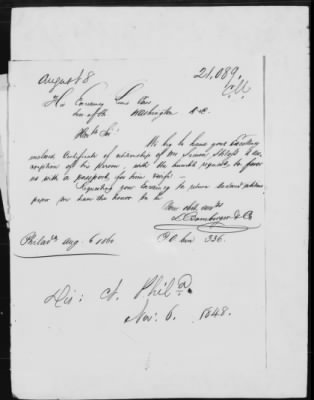 August 8
21,089.
His Excellency Lewis Cass
Washington D.C.
Hon'ble Sir
We beg to hand your Excellency
enclosed Certificate of citizenship of Mr Simon
of his person, with the humble request, to favor
us with a passport for him.
Requesting your Excellency to return enclosed
paper we have the honor to be
Your obdt servts
& Co
Philada Aug. 6 1860
P.O. box 336.
Dis: Ct. Phila.
Nov. 6. 1848.